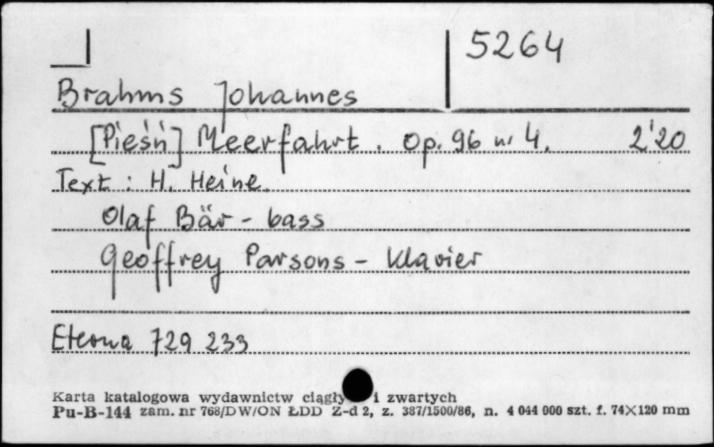 5264
Brahms Johannes
[Pieśń] Meerfahrt. Op. 96 nr 4. 2'20
Text: H. Heine.
Olaf Bär - bass
Geoffrey Parsons - Klavier
Eterna 729 233
Karta katalogowa wydawnictw ciągły i zwartych
Pu-B-144 zam. nr 768/DW/ON ŁDD Z-d 2, z. 387/1500/86, n. 4 044 000 szt. f. 74×120 mm